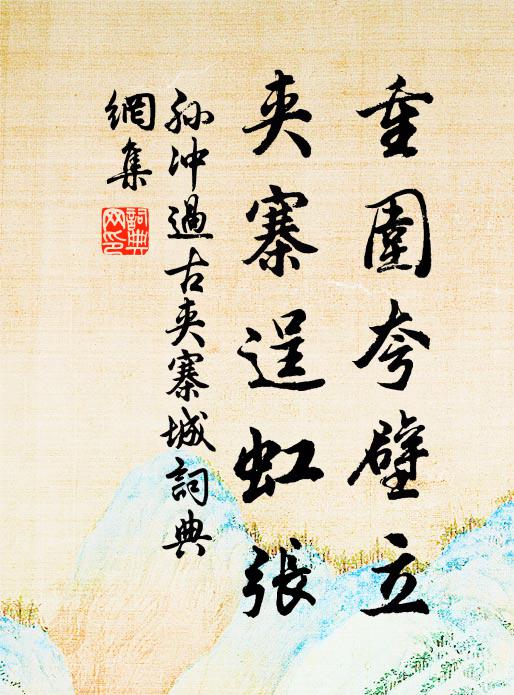 重圍夸壁立
夾寨逞虹張
孙冲過古夾寨城詞典
網集
詞典
网印